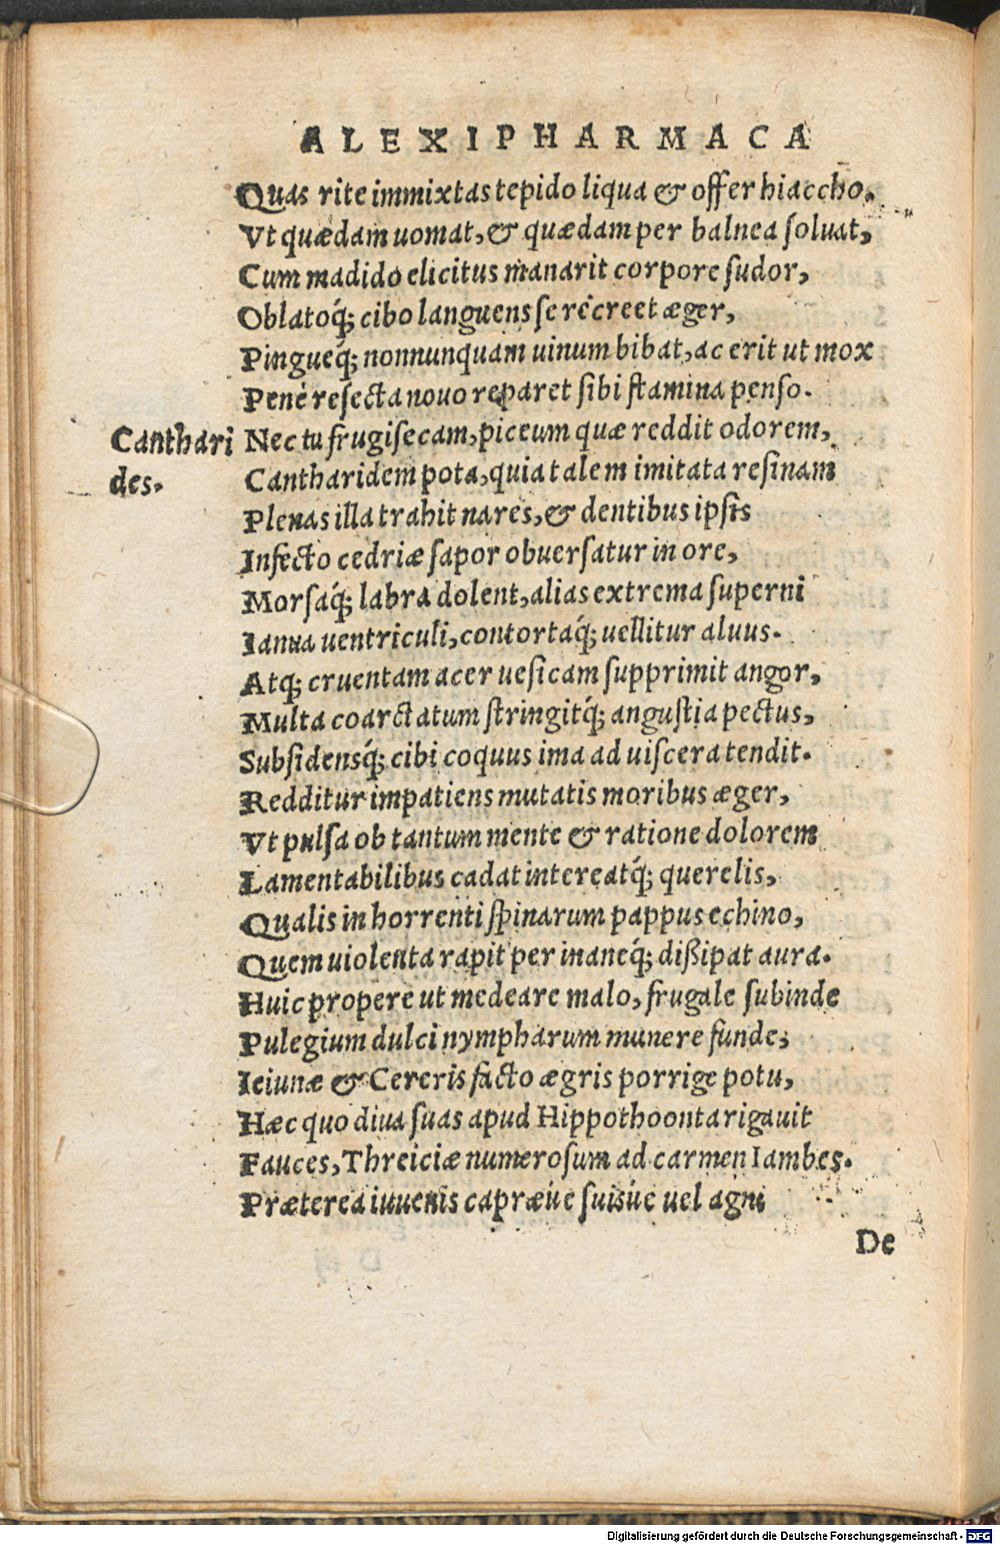 ALEXIPHARMACA
Quas rite immixtas tepido liqua & offer hiaccho.
Vt quædam uomat, & quædam per balnea soluat,
Cum madido elicitus manarit corpore sudor,
Oblatoq́; cibo languens se recreet æger,
Pingueq́; nonnunquam uinum bibat, ac erit ut mox
Penè resecta nouo reparet sibi stamina penso.
Canthari
des.
Nec tu frugisecam, piceum quæ reddit odorem,
Cantharidem pota, quia talem imitata resinam
Plenas illa trahit nares, & dentibus ipsis
Infecto cedriæ sapor obuersatur in ore,
Morsaq́; labra dolent, alias extrema superni
Ianua uentriculi, contortaq́; uellitur aluus.
Atq; cruentam acer uesicam supprimit angor,
Multa coarctatum stringitq́; angustia pectus,
Subsidensq́; cibi coquus ima ad uiscera tendit.
Redditur impatiens mutatis moribus æger,
Vt pulsa ob tantum mente & ratione dolorem
Lamentabilibus cadat intereatq́; querelis,
Qualis in horrenti spinarum pappus echino,
Quem uiolenta rapit per inaneq́; dißipat aura.
Huic propere ut medeare malo, frugale subinde
Pulegium dulci nympharum munere funde;
Ieiunæ & Cereris facto ægris porrige potu,
Hæc quo diua suas apud Hippothoonta rigauit
Fauces, Threiciæ numerosum ad carmen Iambes.
Præterea iuuenis capræúe suisúe uel agni
De
Digitalisierung gefördert durch die Deutsche Forschungsgemeinschaft - DFG